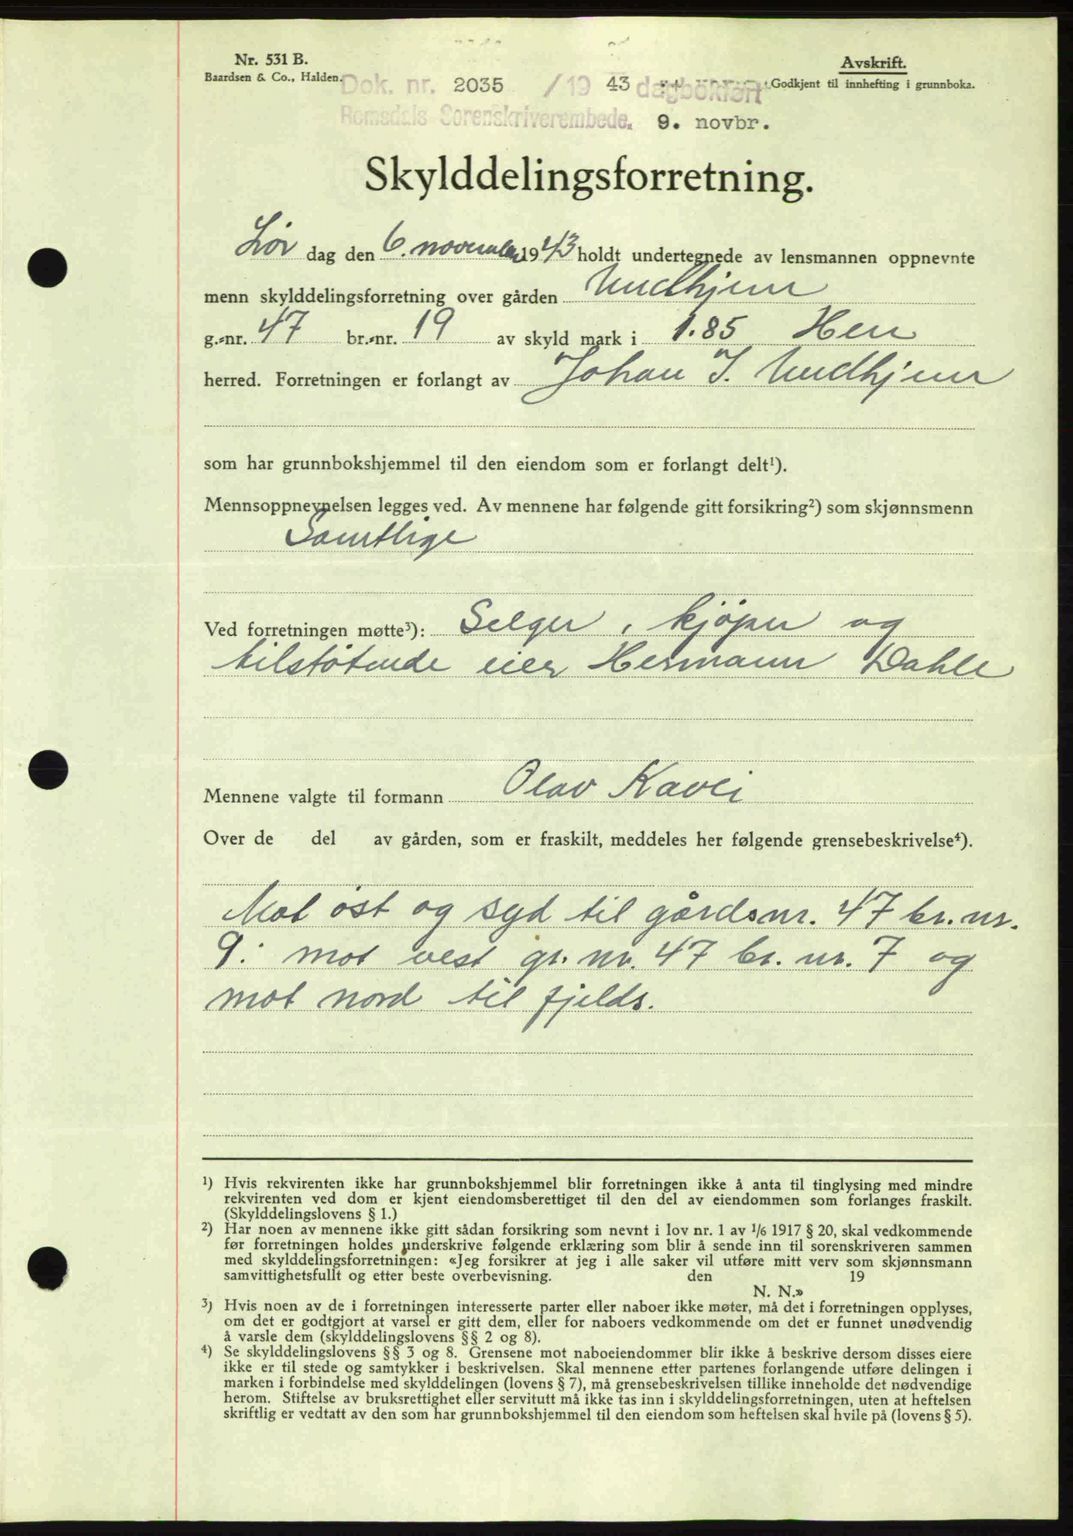 Nr. 531 B.
Baardsen & Co., Halden.
Avskrift.
Godkjent til innhefting i grunnboka.
Dok. nr. 2035 / 19 43 dagbokført
Romsdals Sorenskriverembede. 9. novbr.
Skylddelingsforretning.
Lør dag den 6. november 1943 holdt undertegnede av lensmannen oppnevnte
menn skylddelingsforretning over gården Undhjem
g.-nr. 47 br.-nr. 19 av skyld mark i 1.85 Hen
herred. Forretningen er forlangt av Johan J. Undhjem
som har grunnbokshjemmel til den eiendom som er forlangt delt¹).
Mennsoppnevnelsen legges ved. Av mennene har følgende gitt forsikring²) som skjønnsmenn
Samtlige
Ved forretningen møtte³): Selger, kjøper og
tilstøtende eier Hermann Dahle
Mennene valgte til formann Olav Kavli
Over de del av gården, som er fraskilt, meddeles her følgende grensebeskrivelse⁴).
Mot øst og syd til gårdsnr. 47 br. nr.
9: mot vest gr. nr. 47 br. nr. 7 og
mot nord til fjelds.
¹) Hvis rekvirenten ikke har grunnbokshjemmel blir forretningen ikke å anta til tinglysing med mindre
rekvirenten ved dom er kjent eiendomsberettiget til den del av eiendommen som forlanges fraskilt.
(Skylddelingslovens § 1.)
²) Har noen av mennene ikke gitt sådan forsikring som nevnt i lov nr. 1 av ¹/₆ 1917 § 20, skal vedkommende
før forretningen holdes underskrive følgende erklæring som blir å sende inn til sorenskriveren sammen
med skylddelingsforretningen: «Jeg forsikrer at jeg i alle saker vil utføre mitt verv som skjønnsmann
samvittighetsfullt og etter beste overbevisning. den 19
N. N.»
³) Hvis noen av de i forretningen interesserte parter eller naboer ikke møter, må det i forretningen opplyses,
om det er godtgjort at varsel er gitt dem, eller for naboers vedkommende om det er funnet unødvendig
å varsle dem (skylddelingslovens §§ 2 og 8).
⁴) Se skylddelingslovens §§ 3 og 8. Grensene mot naboeiendommer blir ikke å beskrive dersom disses eiere
ikke er til stede og samtykker i beskrivelsen. Skal mennene etter partenes forlangende utføre delingen i
marken i forbindelse med skylddelingen (lovens § 7), må grensebeskrivelsen tillike inneholde det nødvendige
herom. Stiftelse av bruksrettighet eller servitutt må ikke tas inn i skylddelingsforretningen, uten at heftelsen
skriftlig er vedtatt av den som har grunnbokshjemmel til den eiendom som heftelsen skal hvile på (lovens § 5).